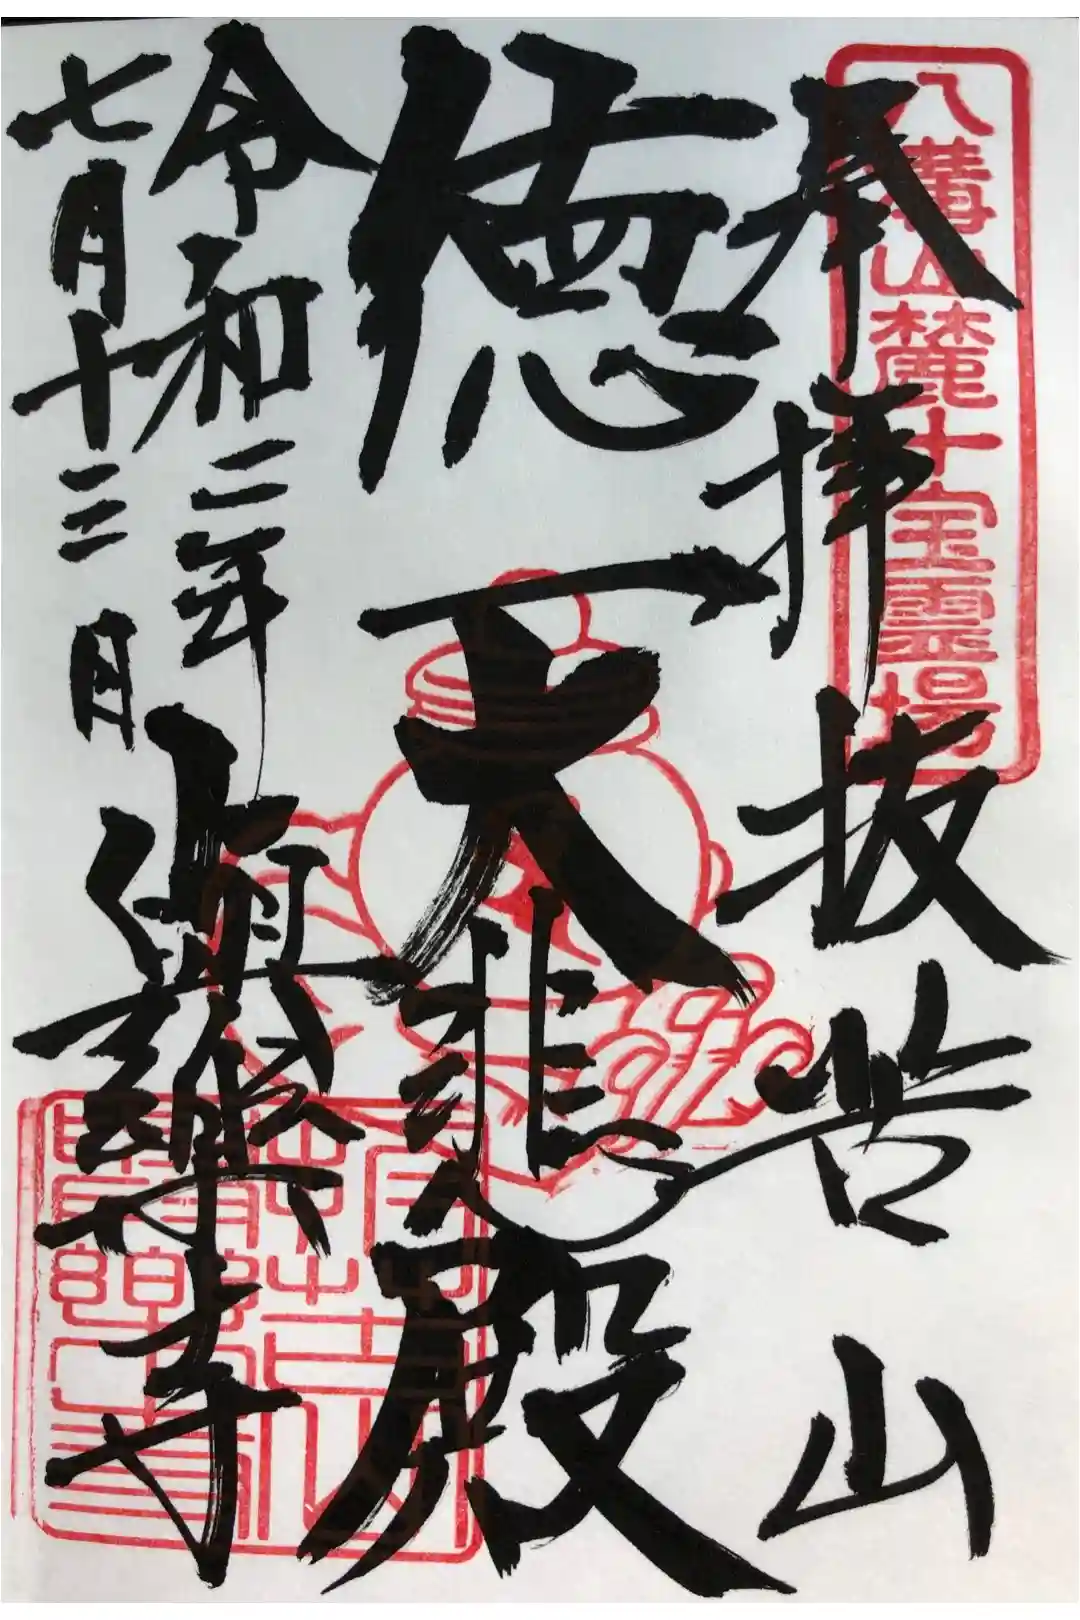 八溝山麓十宝霊場
奉拝 抜苦山
徳一大悲殿
令和二年
七月十三日
寺